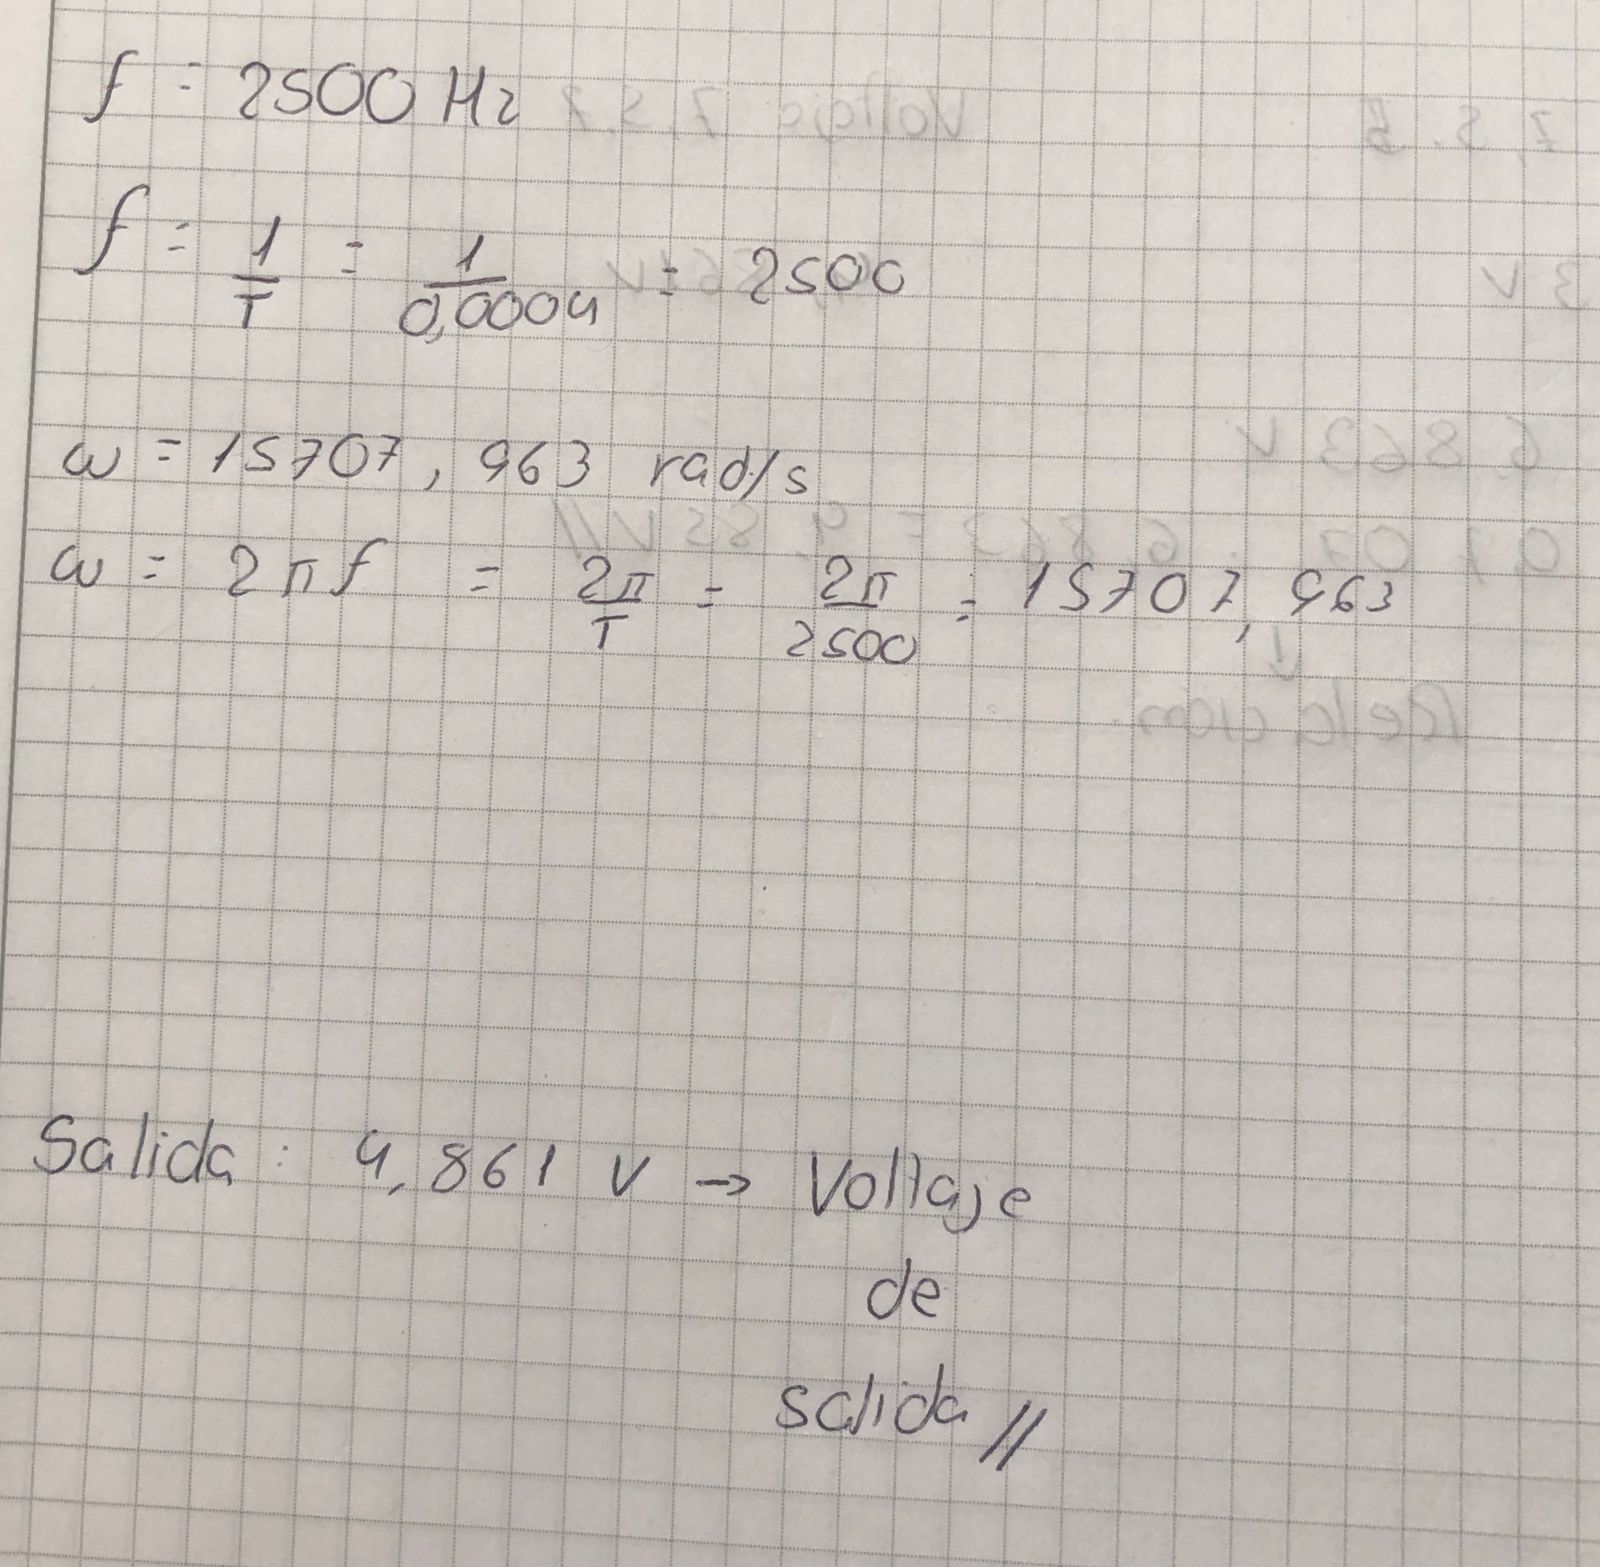 f = 2500 Hz
f = 1/T = 1/0,0004 = 2500
ω = 15707,963 rad/s
ω = 2πf = 2π/T = 2π/2500 = 15707,963
Salida: 4,861 V → Voltaje
de
salida //